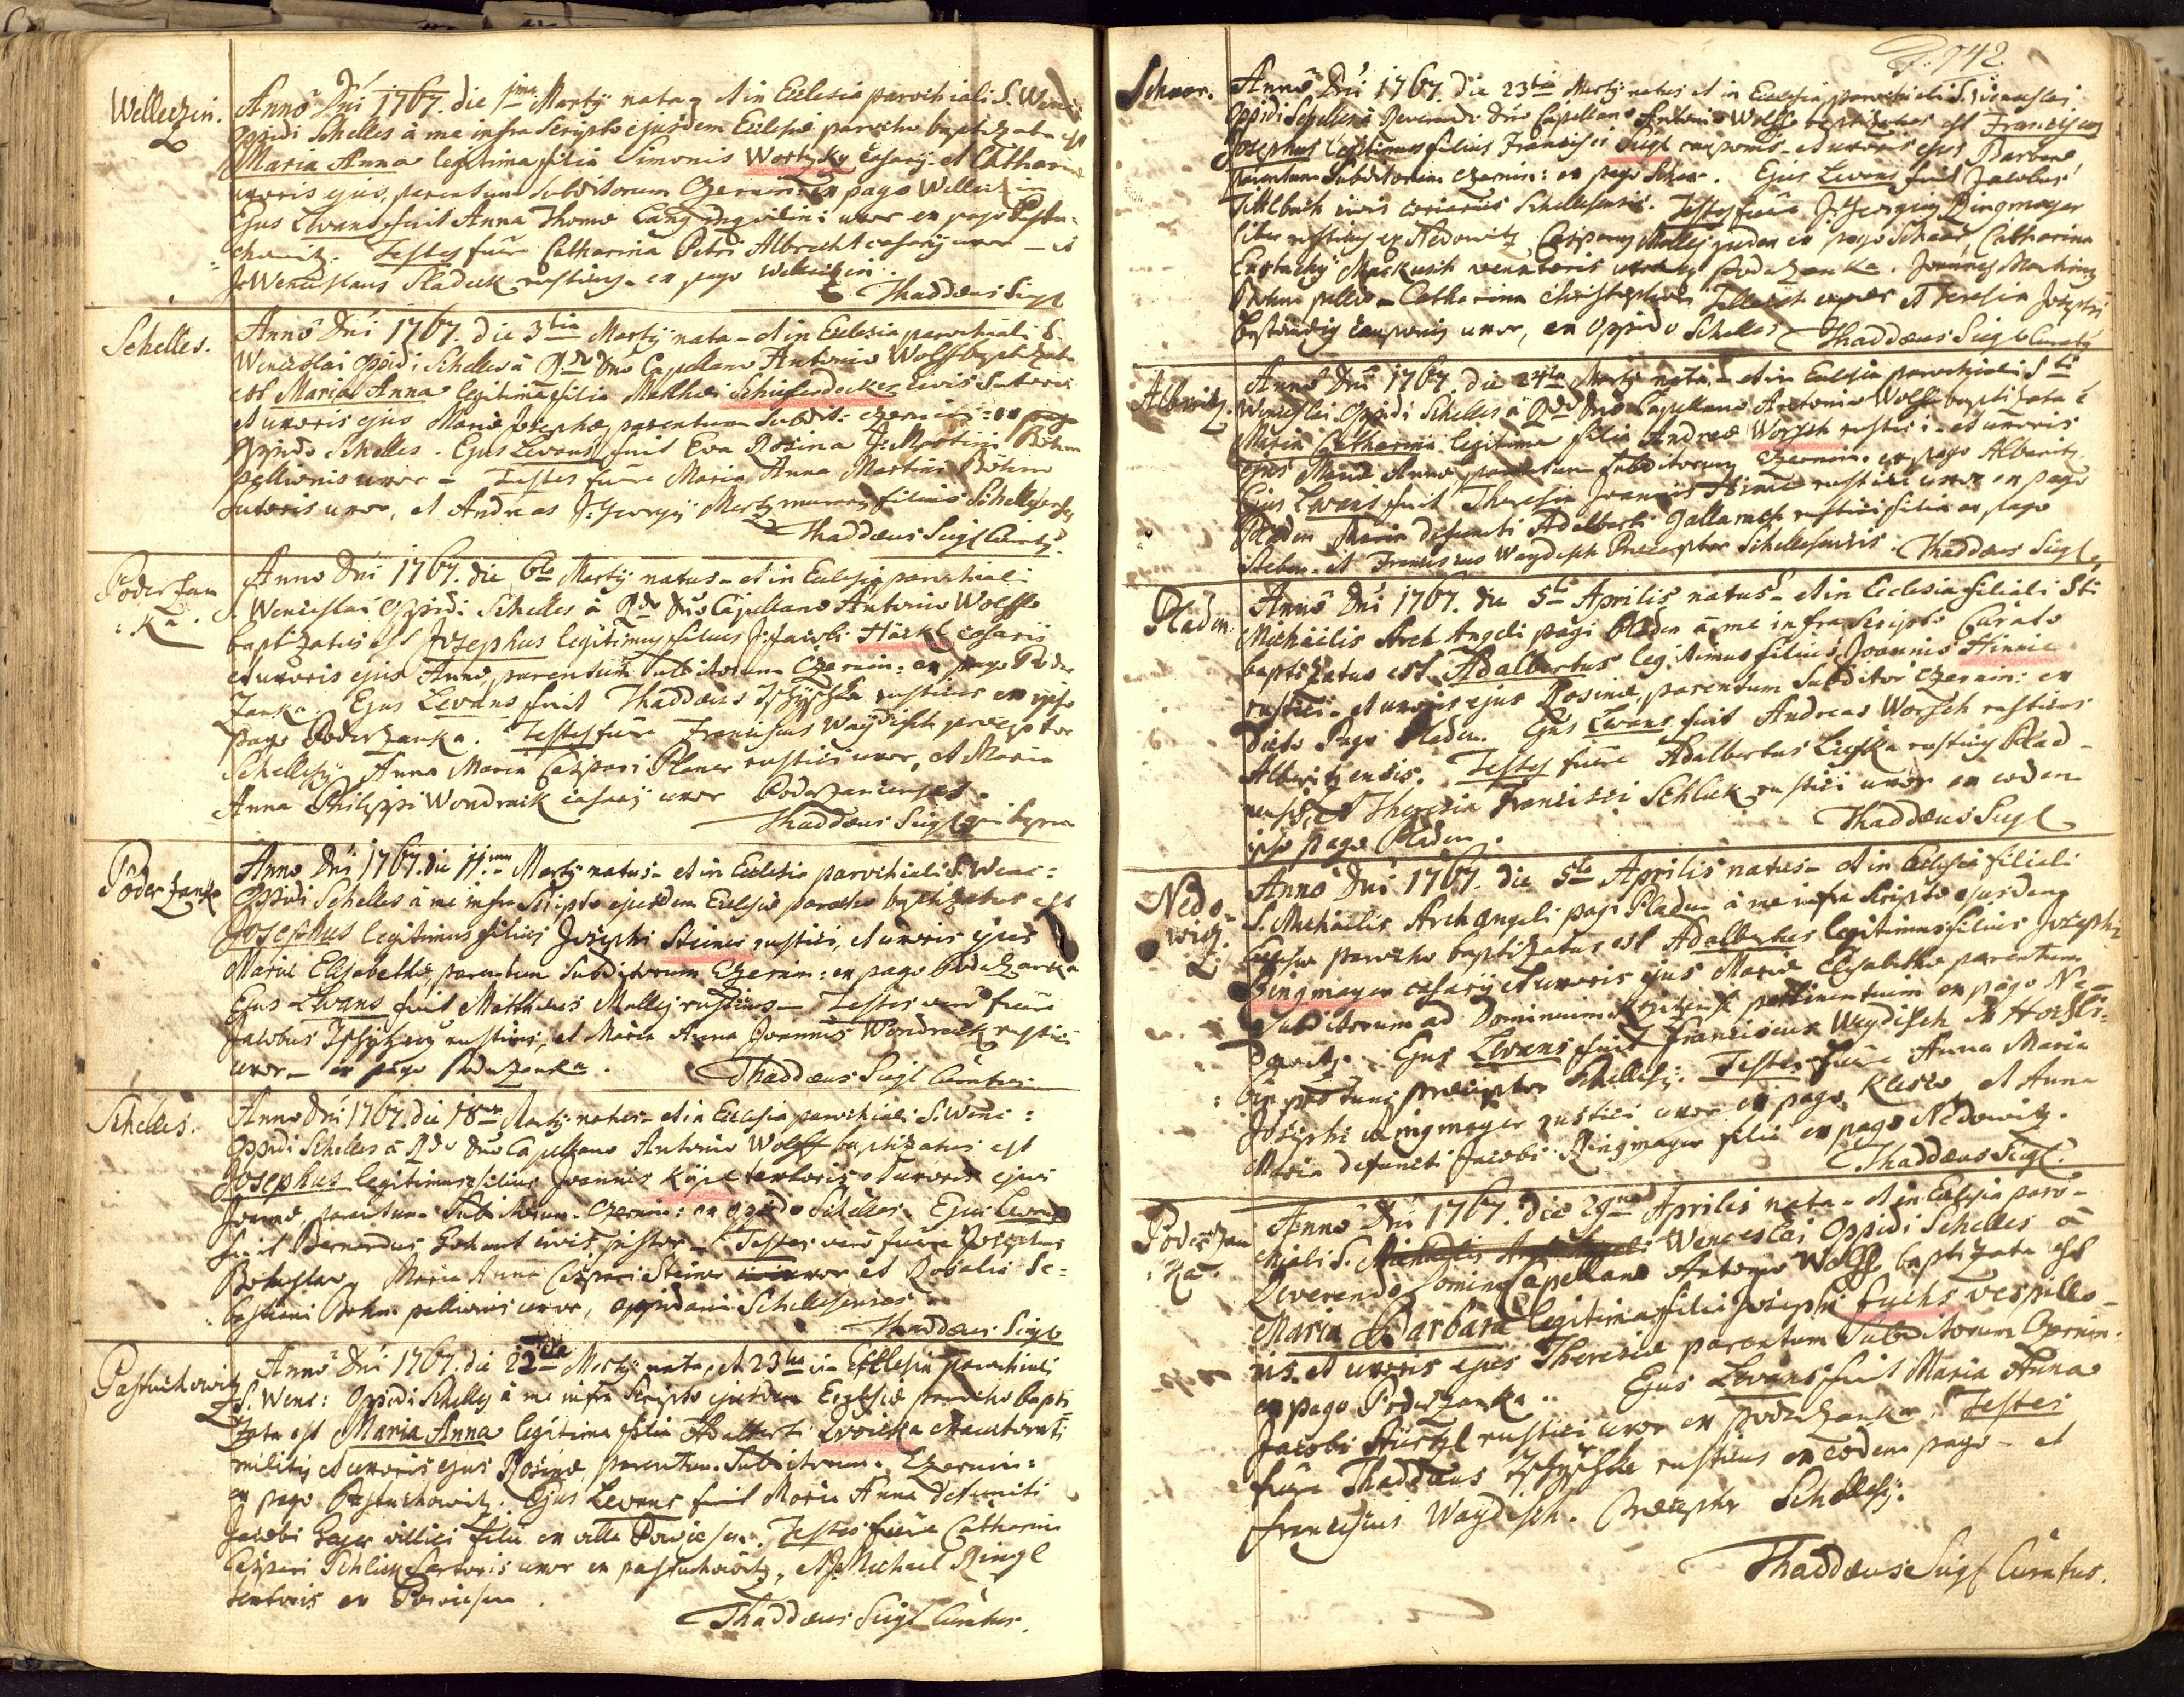 Welleczin.
Anno Dni 1767. die 1ma Martij nata et in Ecclesia parochiali S. Wenc:
Oppidi Schelles à me infra Scripto ejusdem Ecclesiæ parocho baptizata est
Maria Anna legitima filia Simonis Wortzky casarij et Catharinæ
uxoris ejus, parentum Subditorum Czernin: ex pago Welleczin
Ejus Levans fuit Anna Thomæ Lang inquilini uxor ex pago Pastu-
chowitz. Testes fuere Catharina Petri Albrecht casarij uxor et
J: Wenceslaus Sladeck rusticus ex pago Welleczin.
Thaddæus Sigl
Schelles.
Anno Dni 1767. die 3tia Martij nata et in Ecclesia parochiali S.
Wenceslai Oppidi Schelles à Rdo Dno Capellano Antonio Wolff baptizata
est Maria Anna legitima filia Mathæi Schiferdecker civis Sutoris
et uxoris ejus Mariæ Josephæ, parentum Subdit: Czernin: ex
Oppido Schelles. Ejus Levans fuit Eva Rosina J: Martini Böhm
pellionis uxor Testes fuere Maria Anna Martini Böhm
Sutoris uxor, et Andreas J: Georgij filius Schellesensis
Thaddæus Sigl Curatus
Poderzan
:ka.
Anno Dni 1767. die 6ta Martij natus et in Ecclesia parochiali
S. Wenceslai Oppidi Schelles à Rdo Dno Capellano Antonio Wolff
baptizatus est Josephus legitimus filius J: Jacobi Häckl casarij
et uxoris ejus Annæ, parentum Subditorum Czernin: ex pago Poder
zanka. Ejus Levans fuit Thaddæus rusticus ex ipso
pago Poderzanka. Testes fuere Franciscus Waydisch præceptor
Schellesij Anna Maria Caspari Planer rustici uxor, et Maria
Anna Philippi Wondrack casarij uxor Poderzanienses.
Thaddæus Sigl
Poderzanka
Anno Dni 1767. die 11ma Martij natus et in Ecclesia parochiali S. Wenc:
Oppidi Schelles à me infra Scripto ejusdem Ecclesiæ parocho baptizatus est
Josephus legitimus filius Josephi Steiner rustici, et uxoris ejus
Mariæ Elisabethæ, parentum Subditorum Czernin: ex pago Poderzanka
Ejus Levans fuit Matthæus Malley rusticus Testes vero fuere
Jacobus rusticus, et Maria Anna Joannis Wondrack rustici
uxor ex pago Poderzanka.
Thaddæus Sigl Curatus
Schelles.
Anno Dni 1767. die 18va Martij natus et in Ecclesia parochiali S. Wenc:
Oppidi Schelles à Rdo Dno Capellano Antonio Wolff baptizatus est
Josephus legitimus filius Joannis textoris et uxoris ejus
parentum Subditorum Czernin: ex oppido Schelles. Ejus Levans
fuit Bernardus civis pistor Testes vero fuere Josephus
Bohuslav, Maria Anna Caspari Steiner uxor et Rosalia Se:
bastiani Böhm pellionis uxor, oppidani Schellesenses.
Thaddæus Sigl
Pastuchowitz
Anno Dni 1767. die 22da Martij nata, et 23tia in Ecclesia parochiali
S. Wenc: Oppidi Schelles à me infra Scripto ejusdem Ecclesiæ parocho bapti
zata est Maria Anna legitima filia Adalberti exauctorati
militis et uxoris ejus Rosinæ parentum Subditorum Czernin:
ex pago Pastuchowitz. Ejus Levans fuit Maria Anna defuncti
Jacobi villici filia ex villa Testes fuere Catharina
Caspari Schlick Sartoris uxor ex pastuchowitz, et J: Michael Ringl
textoris ex
Thaddæus Sigl Curatus.
P. 942
Schaar.
Anno Dni 1767. die 23tia Martij natus et in Ecclesia parochiali S. Wenceslai
Oppidi Schelles à Reverendo Dno Capellano Antonio Wolff baptizatus est Franciscus
Josephus legitimus filius Francisci Sigl cauponis et uxoris ejus Barbaræ,
parentum Subditorum Czernin: ex pago Schaar. Ejus Levans fuit Jacobus
civis coriarius Schellesensis. Testes fuere J: Georgius Ringmayer
rusticus ex Nedowitz Casparus Malley ex pago Schaar, Catharina
Eustachij venatoris uxor ex Poderzanka. Joannes Martinus
Böhm pellio Catharina Christophori uxor et Theresia Josephi
cauponis uxor, ex Oppido Schelles
Thaddæus Sigl Curatus
Alberitz.
Anno Dni 1767. die 24ta Martij nata et in Ecclesia parochiali Sti
Wenceslai Oppidi Schelles à Rdo Dno Capellano Antonio Wolff baptizata e
Maria Catharina legitima filia Andreæ Worsch rustici et uxoris
ejus Mariæ Annæ parentum Subditorum Czernin. ex pago Alberitz.
Ejus Levans fuit Theresia Joannis Hinie rustici uxor ex pago
Pladen Maria defuncti Adalberti rustici filia ex pago
Steben. et Franciscus Waydisch Præceptor Schellesensis. Thaddæus Sigl
Pladen.
Anno Dni 1767. die 5ta Aprilis natus et in Ecclesia filiali Sti
Michäelis Arch Angeli pagi Pladen à me infra Scripto Curato
baptizatus est Adalbertus legitimus filius Joannis Hinnie
rustici et uxoris ejus Rosinæ, parentum Subditor Czernin: ex
dicto Pago Pladen. Ejus Levans fuit Andreas Worsch rusticus
Alberitzensis. Testes fuere Adalbertus Liska rusticus Plad-
nensis, et Theresia Francisci Schlick rustici uxor ex eodem
ipso pago Pladen.
Thaddæus Sigl
Nedo-
witz.
Anno Dni 1767. die 5ta Aprilis natus et in Ecclesia filiali
S. Michaelis Archangeli pagi Pladen à me infra Scripto ejusdem
Ecclesiæ parocho baptizatus est Adalbertus legitimus filius Josephi
Ringmayer casarij et uxoris ejus Mariæ Elisabethæ parentum
Subditorum ad Dominium pertinentium ex pago Ne-
dowitz. Ejus Levans fuit Franciscus Waydisch
præceptor Schellesij. Testes fuere Anna Maria
Josephi Ringmayer rustici uxor ex pago et Anna
Maria defuncti Jacobi Ringmayer filia ex pago Nedowitz.
Thaddæus Sigl.
Poderzan
:ka.
Anno Dni 1767. die 29na Aprilis nata et in Ecclesia paro-
chiali S. Wenceslai Oppidi Schelles à
Reverendo Domino Capellano Antonio Wolff baptizata est
Maria Barbara legitima filia Josephi Fuchs vespillo-
nis. et uxoris ejus Theresiæ parentum Subditorum Czernin.
ex pago Poderzanka. Ejus Levans fuit Maria Anna
Jacobi rustici uxor ex Poderzanka. Testes
fuere Thaddæus rusticus ex eodem pago et
Franciscus Waydisch. Præceptor Schellesij.
Thaddæus Sigl Curatus.